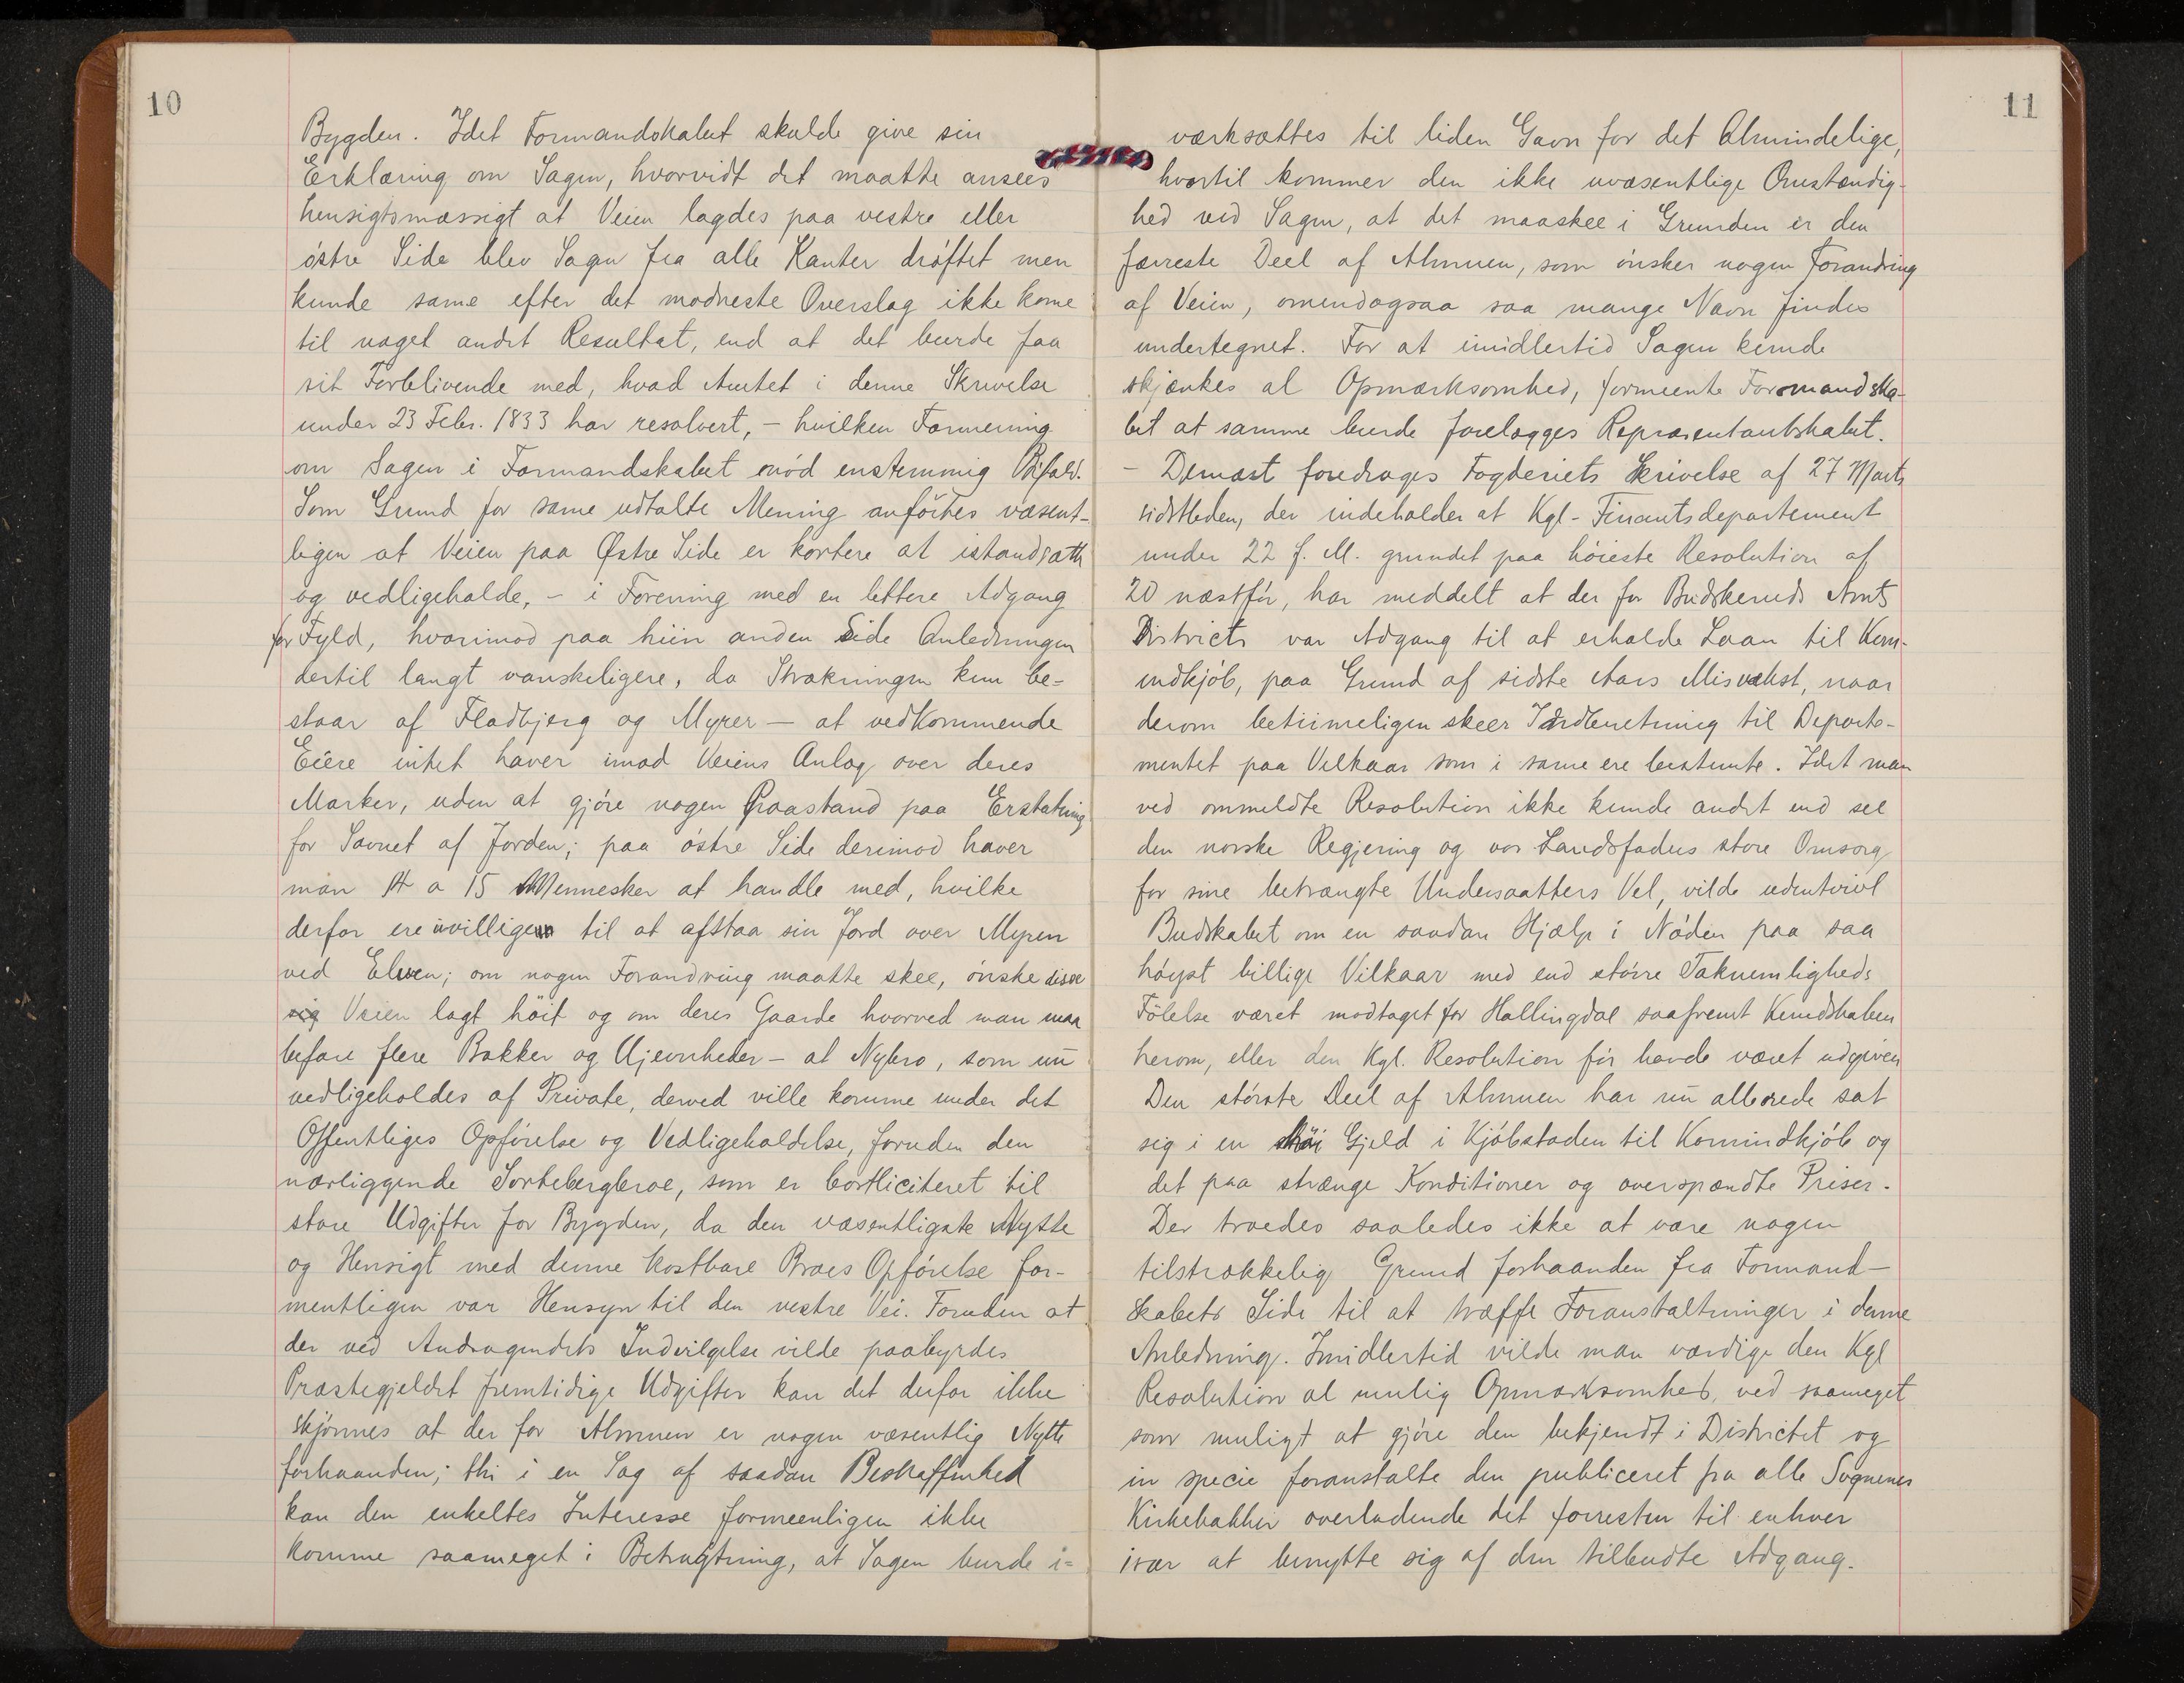 10
Bygden. Idet Formandskabet skulde give sin
Erklæring om Sagen, hvorvidt det maatte ansees
hensigtsmæssigt at Veien lagdes paa vestre eller
östre Side blev Sagen fra alle Kanter dröftet men
kunde same efter det modneste Overslag ikke kome
til noget andet Resultat, end at det burde faa
sit Forblivende med, hvad Amtet i denne Skrivelse
under 23 Febr. 1833 har resolvert, - hvilken Formening
om Sagen i Formandskabet nöd enstemmig Bifald.
Som Grund for same udtalte Mening anförtes væsent-
ligen at Veien paa Østre Side er kortere at istandsætte
og vedligeholde, - i Forening med en lettere Adgang
for Fyld, hvorimod paa hiin anden Side Anledningen
dertil langt vanskeligere, da Strækningen kun be-
staar af Fladbjerg og Myrer - at vedkommende
Eiere intet haver imod Veiens Anlæg over deres
Marker, uden at gjöre nogen Paastand paa Erstatning
for Savnet af Jorden; paa östre Side derimod haver
man 14 a 15 Mennesker at handle med, hvilke
derfor ere uvillige til at afstaa sin Jord over Myren
ved Elven; om nogen Forandring maatte skee, önske disse
sig Veien lagt höit og om deres Gaarde hvorved man maa
befare flere Bakker og Ujevnheder - at Nybro, som nu
vedligeholdes af Private, derved ville komme under det
Offentliges Opförelse og Vedligeholdelse, foruden den
nærliggende Sortebergbroe, som er bortliciteret til
store Udgifter for Bygden, da den væsentligste Nytte
og Hensigt med denne kostbare Broes Opförelse for-
mentligen var Hensyn til den vestre Vei. Foruden at
der ved Andragendets Indvilgelse vilde paabyrdes
Præstegjeldet fremtidige Udgifter kan det derfor ikke
skjönnes at der for Almuen er nogen væsentlig Nytte
forhaanden; thi i en Sag af saadan Beskaffenhed
kan den enkeltes Interesse formeenligen ikke
komme saameget i Betragtning, at Sagen burde i=
11
værksættes til liden Gavn for det Almindelige,
hvortil kommer den ikke uvæsentlige Omstændig-
hed ved Sagen, at det maaskee i Grunden er den
færreste Deel af Almuen, som önsker nogen Forandring
af Veien, omendogsaa saa mange Navn findes
undertegnet. For at imidlertid Sagen kunde
skjænkes al Opmærksomhed, formeente Formandska-
bet at samme burde forelægges Repræsentantskabet.
- Dernæst foredrages Fogderiets Skrivelse af 27 Marts
sidstleden, der indeholder at Kgl- Finantsdepartement
under 22 f. M. grundet paa höieste Resolution af
20 næstför, har meddelt at der for Budskeruds Amts
Districts var Adgang til at erholde Laan til Korn-
indkjöb, paa Grund af sidste Aars Misvækst, naar
derom betiimeligen skeer Indberetning til Departe-
mentet paa Vilkaar som i same ere bestemte. Idet man
ved ommeldte Resolution ikke kunde andet end see
den norske Regjering og vor Landsfaders store Omsorg
for sine betrængte Undersaatters Vel, vilde udentvivl
Budskabet om en saadan Hjælp i Nöden paa saa
höyst billige Vilkaar med end större Taknemligheds
Fölelse været modtaget for Hallingdal saafremt Kundskaben
herom, eller den Kgl. Resolution för havde været udgiven
Den störste Deel af Almuen har nu allerede sat
sig i en höi Gjeld i Kjöbstaden til Kornindkjöb og
det paa strænge Konditioner og overspændte Priser.
Der troedes saaledes ikke at være nogen
tilstrækkelig Grund forhaanden fra Formand-
skabets Side til at træffe Foranstaltninger i denne
Anledning. Imidlertid vilde man værdige den Kgl
Resolution al mulig Opmærksomhed, ved saameget
som muligt at gjöre den bekjendt i Districtet og
in specie foranstalte den publiceret fra alle Sognenes
Kirkebakker overladende det forresten til enhver
især at benytte sig af den tilbudte Adgang.